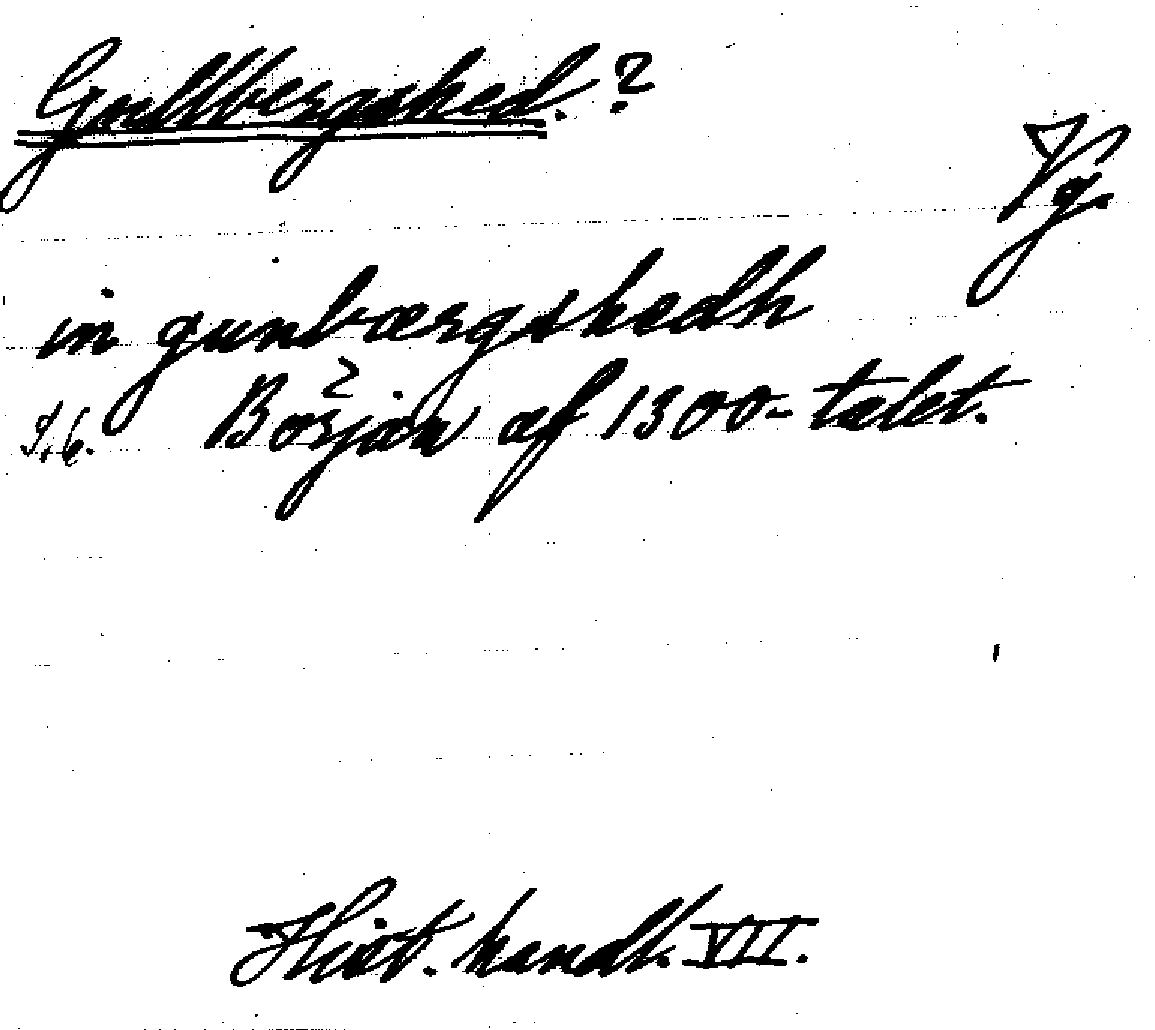 Gullbergshed.?
Vg.
in gunbærgshedh
S. 6. Början af 1300-talet.
Hist. handl. VII.